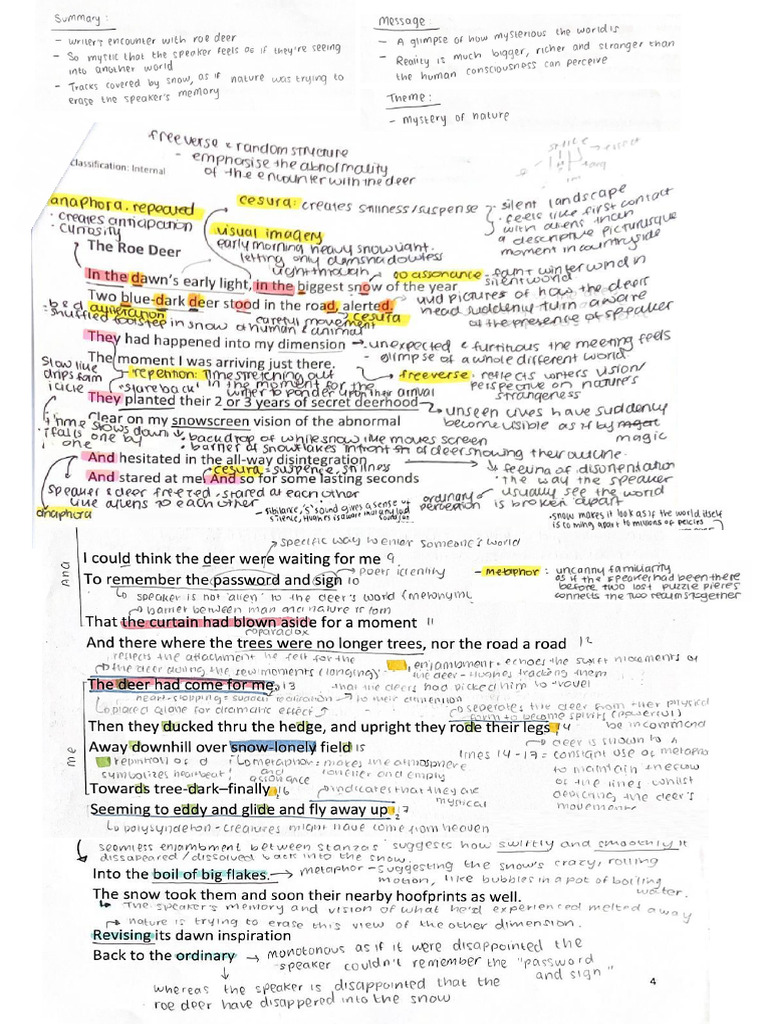 Summary:
- Writer's encounter with roe deer
- So mystic that the speaker feels as if they're seeing
into another world
- Tracks covered by snow, as if nature was trying to
erase the speaker's memory
Message:
- A glimpse of how mysterious the world is
- Reality is much bigger, richer and stranger than
the human consciousness can perceive
Theme:
- Mystery of nature
free verse & random structure
- emphasise the abnormality
of the encounter with the deer
Classification: Internal
anaphora, repeated
· creates anticipation
· curiosity
cesura: creates stillness/suspense
· silent landscape
· feels like first contact
with aliens than
a descriptive picturesque
moment in countryside
visual imagery
early morning heavy snow
letting only
light through
The Roe Deer
oo assonance - faint winter wind in
silent world
In the dawn's early light, in the biggest snow of the year
Two blue-dark deer stood in the road, alerted.
vivid pictures of how the deers
head suddenly turn aware
of the presence of speaker
b & d alliteration
shuffled footstep in snow of human & animal
careful movement
cesura
They had happened into my dimension
→ unexpected & furtitious the meeting feels
- glimpse of a whole different world
The moment I was arriving just there.
repention: Time stretching out
in the moment for the
writer to ponder upon their arrival
· stare back
freeverse · reflects writers vision/
perspective on nature's
strangeness
Slow like
drips from
icicle
They planted their 2 or 3 years of secret deerhood
→ unseen lives have suddenly
become visible as if by
magic
Clear on my snowscreen vision of the abnormal
time slows down
falls one by
one
· backdrop of white snow like movie screen
· barrier of snowflakes in front of deer showing their outline
And hesitated in the all-way disintegration
→ feeling of disorientation
· the way the speaker
usually see the world
is broken apart
cesura = suspense, stillness
And stared at me. And so for some lasting seconds
speaker & deer freezed · stared at each other
like aliens to each other
anaphora
ordinary
perception
- sibilance, 's' sound gives a sense of
silence
snow makes it look as if the world itself
is coming apart to millions of peices
→ specific way to enter someone's world
I could think the deer were waiting for me 9
To remember the password and sign 10
→ poets identity
- metaphor: uncanny familiarity
as if the speaker had been there
before two lost puzzle pieces
connects the two realms together
↳ speaker is not 'alien' to the deer's word (metonymy
→ barrier between man and nature is torn
That the curtain had blown aside for a moment 11
paradox
And there where the trees were no longer trees, nor the road a road 12
reflects the attachment he felt for the
the deer during the few moments (longing)
enjambment - echoes the swift movements of
the deer - Hughes tracking them
The deer had come for me. 13
that the deers had picked him to travel
to their dimension
heart-stopping = sudden realisation
↳ placed alone for dramatic effect
→ seperates the deer from their physical
form to become spirits (powerful)
Then they ducked thru the hedge, and upright they rode their legs 14
Away downhill over snow-lonely field 15
→ deer is shown to
lines 14-17 = constant use of metaphor
to maintain the flow
of the lines whilst
depicting the deer's
movements
repition of d
symbolizes heartbeat
and
assonance
↳ metaphor: makes the atmosphere
lonelier and empty
Towards tree-dark–finally 16
→ indicates that they are
mystical
Seeming to eddy and glide and fly away up 17
↳ polysyndeton - creatures might have come from heaven
seamless enjambment between stanzas suggests how swiftly and smoothly it
dissapeared / dissolved back into the snow.
Into the boil of big flakes.
→ metaphor - suggesting the snow's crazy, rolling
motion, like bubbles in a pot of boiling
water.
The snow took them and soon their nearby hoofprints as well.
↳ The speaker's memory and vision of what he'd experienced melted away
→ nature is trying to erase this view of the other dimension.
Revising its dawn inspiration
Back to the ordinary
→ monotonous as if it were disappointed the
speaker couldn't remember the "password
and sign"
whereas the speaker is disappointed that the
roe deer have disappered into the snow
4